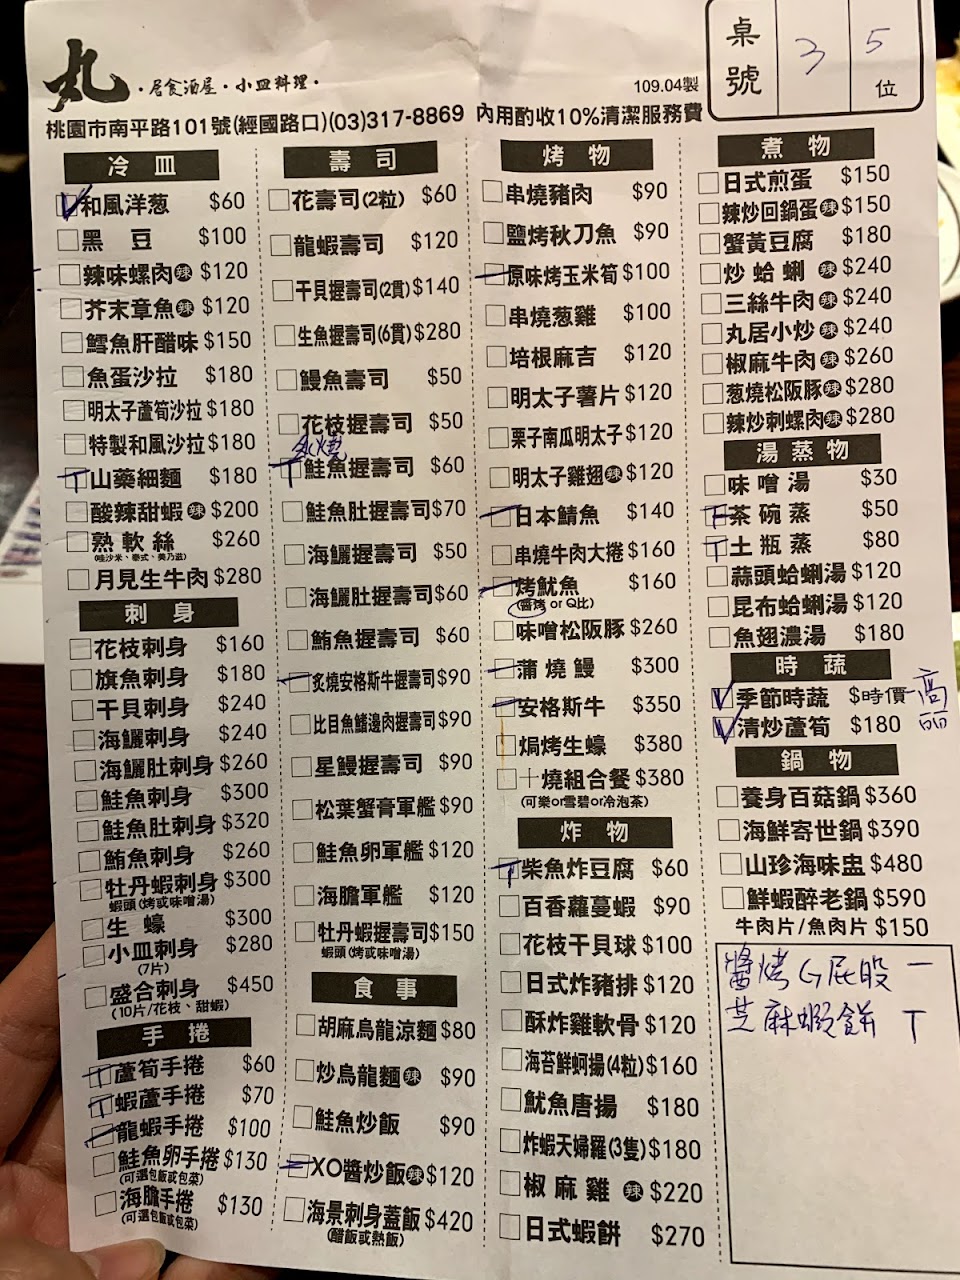 丸 ・居食酒屋・小皿料理・
109.04製
桌號 3 5 位
桃園市南平路101號(經國路口)(03)317-8869 內用酌收10%清潔服務費
冷皿
和風洋葱 $60
黑豆 $100
辣味螺肉辣 $120
芥末章魚辣 $120
鱈魚肝醋味 $150
魚蛋沙拉 $180
明太子蘆筍沙拉 $180
特製和風沙拉 $180
山藥細麵 $180
酸辣甜蝦辣 $200
熟軟絲 $260
月見生牛肉 $280
刺身
花枝刺身 $160
旗魚刺身 $180
干貝刺身 $240
海鱺刺身 $240
海鱺肚刺身 $260
鮭魚刺身 $300
鮭魚肚刺身 $320
鮪魚刺身 $260
牡丹蝦刺身 $300
蝦頭(烤或味噌湯)
生蠔 $300
小皿刺身 $280
(7片)
盛合刺身 $450
(10片/花枝、甜蝦)
手捲
蘆筍手捲 $60
蝦蘆手捲 $70
龍蝦手捲 $100
鮭魚卵手捲 $130
(可選包飯或包菜)
海膽手捲 $130
(可選包飯或包菜)
壽司
花壽司(2粒) $60
龍蝦壽司 $120
干貝握壽司(2貫) $140
生魚握壽司(6貫) $280
鰻魚壽司 $50
花枝握壽司 $50
炙燒
鮭魚握壽司 $60
鮭魚肚握壽司 $70
海鱺握壽司 $50
海鱺肚握壽司 $60
鮪魚握壽司 $60
炙燒安格斯牛握壽司 $90
比目魚鰭邊肉握壽司 $90
星鰻握壽司 $90
松葉蟹膏軍艦 $90
鮭魚卵軍艦 $120
海膽軍艦 $120
牡丹蝦握壽司 $150
蝦頭(烤或味噌湯)
食事
胡麻烏龍涼麵 $80
炒烏龍麵辣 $90
鮭魚炒飯 $90
XO醬炒飯辣 $120
海景刺身蓋飯 $420
(醋飯或熱飯)
烤物
串燒豬肉 $90
鹽烤秋刀魚 $90
原味烤玉米筍 $100
串燒葱雞 $100
培根麻吉 $120
明太子薯片 $120
栗子南瓜明太子 $120
明太子雞翅辣 $120
日本鯖魚 $140
串燒牛肉大捲 $160
烤魷魚 $160
(醬烤 or Q比)
味噌松阪豚 $260
蒲燒鰻 $300
安格斯牛 $350
焗烤生蠔 $380
十燒組合餐 $380
(可樂or雪碧or冷泡茶)
炸物
柴魚炸豆腐 $60
百香蘿蔓蝦 $90
花枝干貝球 $100
日式炸豬排 $120
酥炸雞軟骨 $120
海苔鮮蚵揚(4粒) $160
魷魚唐揚 $180
炸蝦天婦羅(3隻) $180
椒麻雞 辣 $220
日式蝦餅 $270
煮物
日式煎蛋 $150
辣炒回鍋蛋辣 $150
蟹黃豆腐 $180
炒蛤蜊 辣 $240
三絲牛肉辣 $240
丸居小炒辣 $240
椒麻牛肉辣 $260
葱燒松阪豚辣 $280
辣炒刺螺肉辣 $280
湯蒸物
味噌湯 $30
茶碗蒸 $50
土瓶蒸 $80
蒜頭蛤蜊湯 $120
昆布蛤蜊湯 $120
魚翅濃湯 $180
時蔬
季節時蔬 $時價 高麗
清炒蘆筍 $180
鍋物
養身百菇鍋 $360
海鮮寄世鍋 $390
山珍海味盅 $480
鮮蝦醉老鍋 $590
牛肉片/魚肉片 $150
醬烤G屁股 一
芝麻蝦餅 T